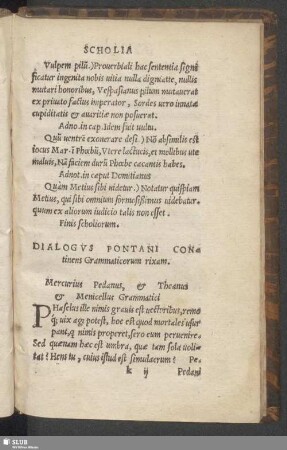 SCHOLIA
Vulpem pilũ.) Prouerbiali hac sententia signi
ficatur ingenita nobis uitia nulla dignitate, nullis
mutari honoribus, Vespasianus pilum mutauerat
ex priuato factus imperator, Sordes uero innatæ
cupiditatis & auaritiæ non posuerat.
Adno. in cap. Idem fuit uultu.
Quũ uentrẽ exonerare desi.) Nõ absimilis est
iocus Mar-
Phœbũ, Vtere lactucis, et mollibus ute
maluis, Nã faciem durũ Phœbe cacantis habes.
Adnot. in caput Domitianus
Quàm Metius sibi uidetur.) Notatur quispiam
Metius, qui sibi omnium formosissimus uidebatur,
quum ex aliorum iudicio talis non esset.
Finis scholiorum.
DIALOGVS PONTANI CON=
tinens Grammaticorum rixam.
Mercurius Pedanus, & Theanus
& Menicellus Grammatici
PHaselus ille nimis grauis est uectoribus, remo
potest, hoc est quod mortales
nimis properet, sero eum peruenire.
Sed quænam hæc est umbra, quæ tam sola uoli=
tat? Heus tu, cuius istud est simulacrum? Pe.
k ij
Pedani
SLUB